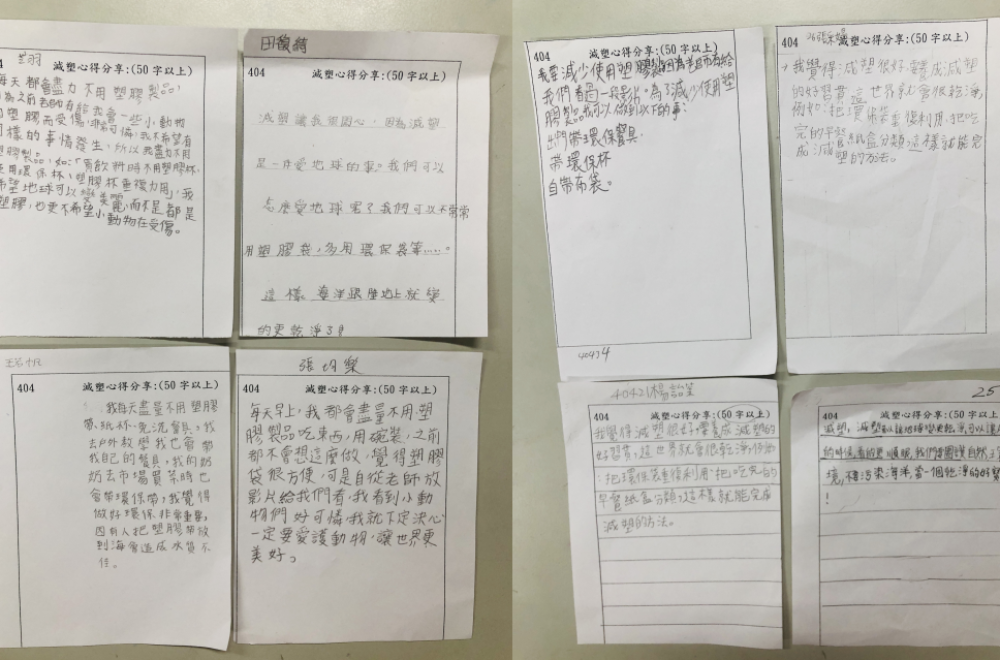 羽
4 減塑心得分享:(50字以上)
每天都會盡力不用塑膠製品,
為之前老師有給我看一些小動物
塑膠而受傷,非常可憐,我不希望有
同樣的事情發生,所以我盡力不用
塑膠製品,如:「買飲料時不用塑膠杯,
用環保杯、塑膠杯重複力用」,我
希望地球可以變美麗,而不是都是
塑膠,也更不希望小動物在受傷。
田馥綺
404 減塑心得分享:(50字以上)
減塑讓我很開心,因為減塑
是一件愛地球的事。我們可以
怎麼愛地球呢?我們可以不常常
用塑膠袋,多用環保袋等……。
這樣,海洋跟陸地上就變
的更乾淨了!
404 減塑心得分享:(50字以上)
我每天盡量不用塑膠
帶、紙杯、免洗餐具,我
去戶外教學我也會帶
我自己的餐具,我向奶
奶去市場買菜時也
會帶環保帶,我覺得
做好環保非常重要,
因有人把塑膠帶放
到海會造成水質不
佳。
張均樂
404 減塑心得分享:(50字以上)
每天早上,我都會盡量不用塑
膠製品吃東西,用碗裝,之前
都不會想這麼做,覺得塑膠
袋很方便,可是自從老師放
影片給我們看,我看到小動
物們好可憐,我就下定決心
一定要愛護動物,讓世界更
美好。
404 減塑心得分享:(50字以上)
我要減少使用塑膠製品因為老師有給
我們看過一段影片,為了減少使用塑
膠製品我可以做到以下的事:
出門帶環保餐具.
帶環保杯
自帶布袋。
40434
26張
404 減塑心得分享:(50字以上)
我覺得減塑很好,養成減塑
的好習慣,這世界就會很乾淨,
例如:把環保袋重復利用,把吃
完的早餐紙盒分類,這樣就能完
成減塑的方法。
40421楊詒
404 減塑心得分享:(50字以上)
我覺得減塑很好,要養成減塑的
好習慣,這世界就會很乾淨,例如
:把環保袋重復利用,把吃完的
早餐紙盒分類,這樣就能完成
減塑的方法。
25
404 減塑心得分享:(50字以上)
減塑,減塑可以讓地球變更乾淨,可以讓人
的時候,看的更順眼,我們要愛護自然
境,不污染海洋,當一個乾淨的好寶
!